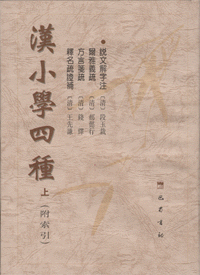 漢小學四種
上
(附索引)
•說文解字注 〔清〕段玉裁
爾雅義疏 〔清〕郝懿行
方言箋疏 〔清〕錢繹
釋名疏證補 〔清〕王先謙
巴蜀書社